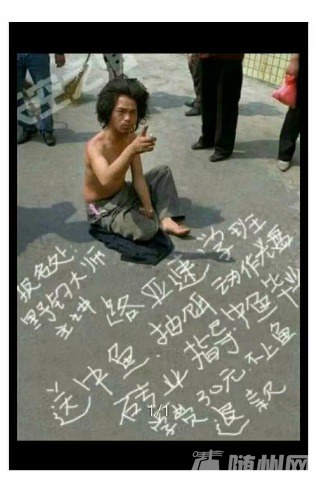 报名处
野钓大师
主讲
路亚速学班
送中鱼.抽饵动作光盘
砖业指导.中鱼毕业
学费30元.不上鱼
退款
1/1
随州网